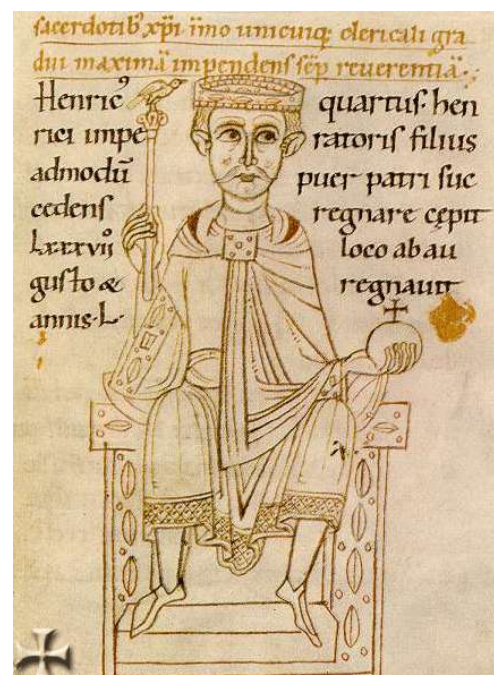 sacerdotib⁹ xp̄i īmo unicuiq; clericali gra
dui maximā impendens sēp reuerentiā.
Henric⁹ quartus. hen
rici impe ratoris filius
admodū puer patri suc
cedens regnare cępit
lxxxvii loco ab au
gusto & regnauit
annis. L.